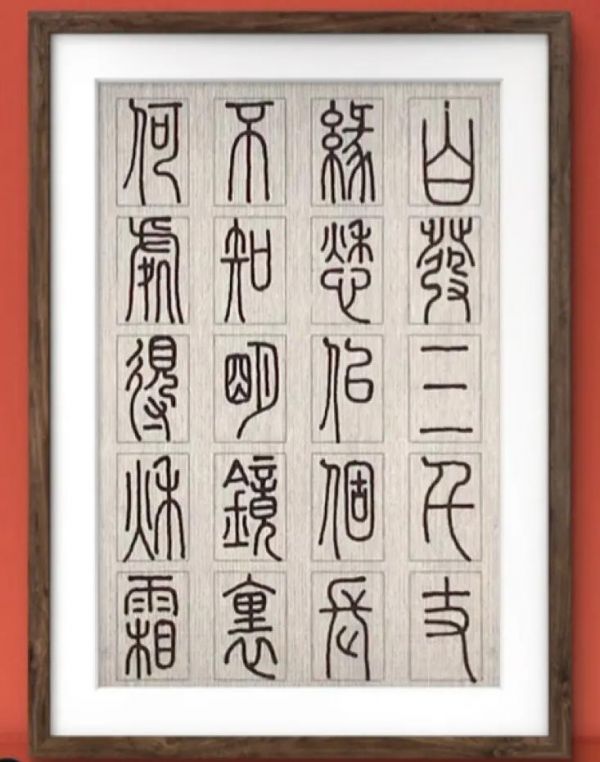 白發三千丈
緣愁似個長
不知明鏡裏
何處得秋霜